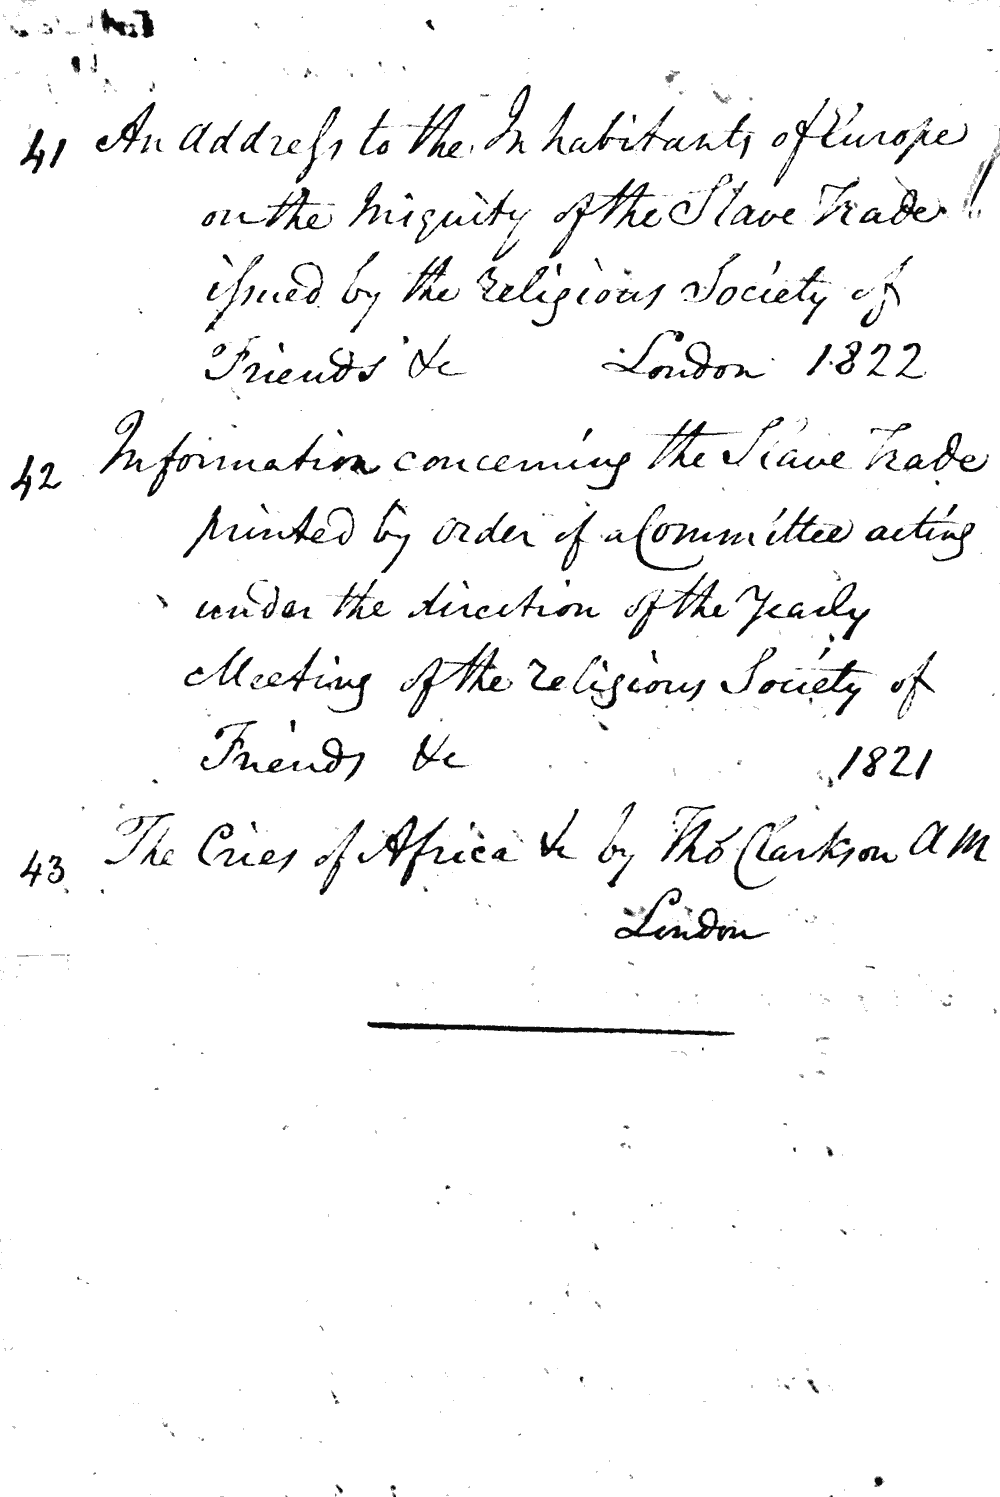 41 An Address to the Inhabitants of Europe
on the Iniquity of the Slave Trade
issued by the religious Society of
Friends &c London 1822
42 Information concerning the Slave Trade
printed by order of a Committee acting
under the direction of the Yearly
Meeting of the religious Society of
Friends &c 1821
43 The Cries of Africa &c by Tho Clarkson A M
London